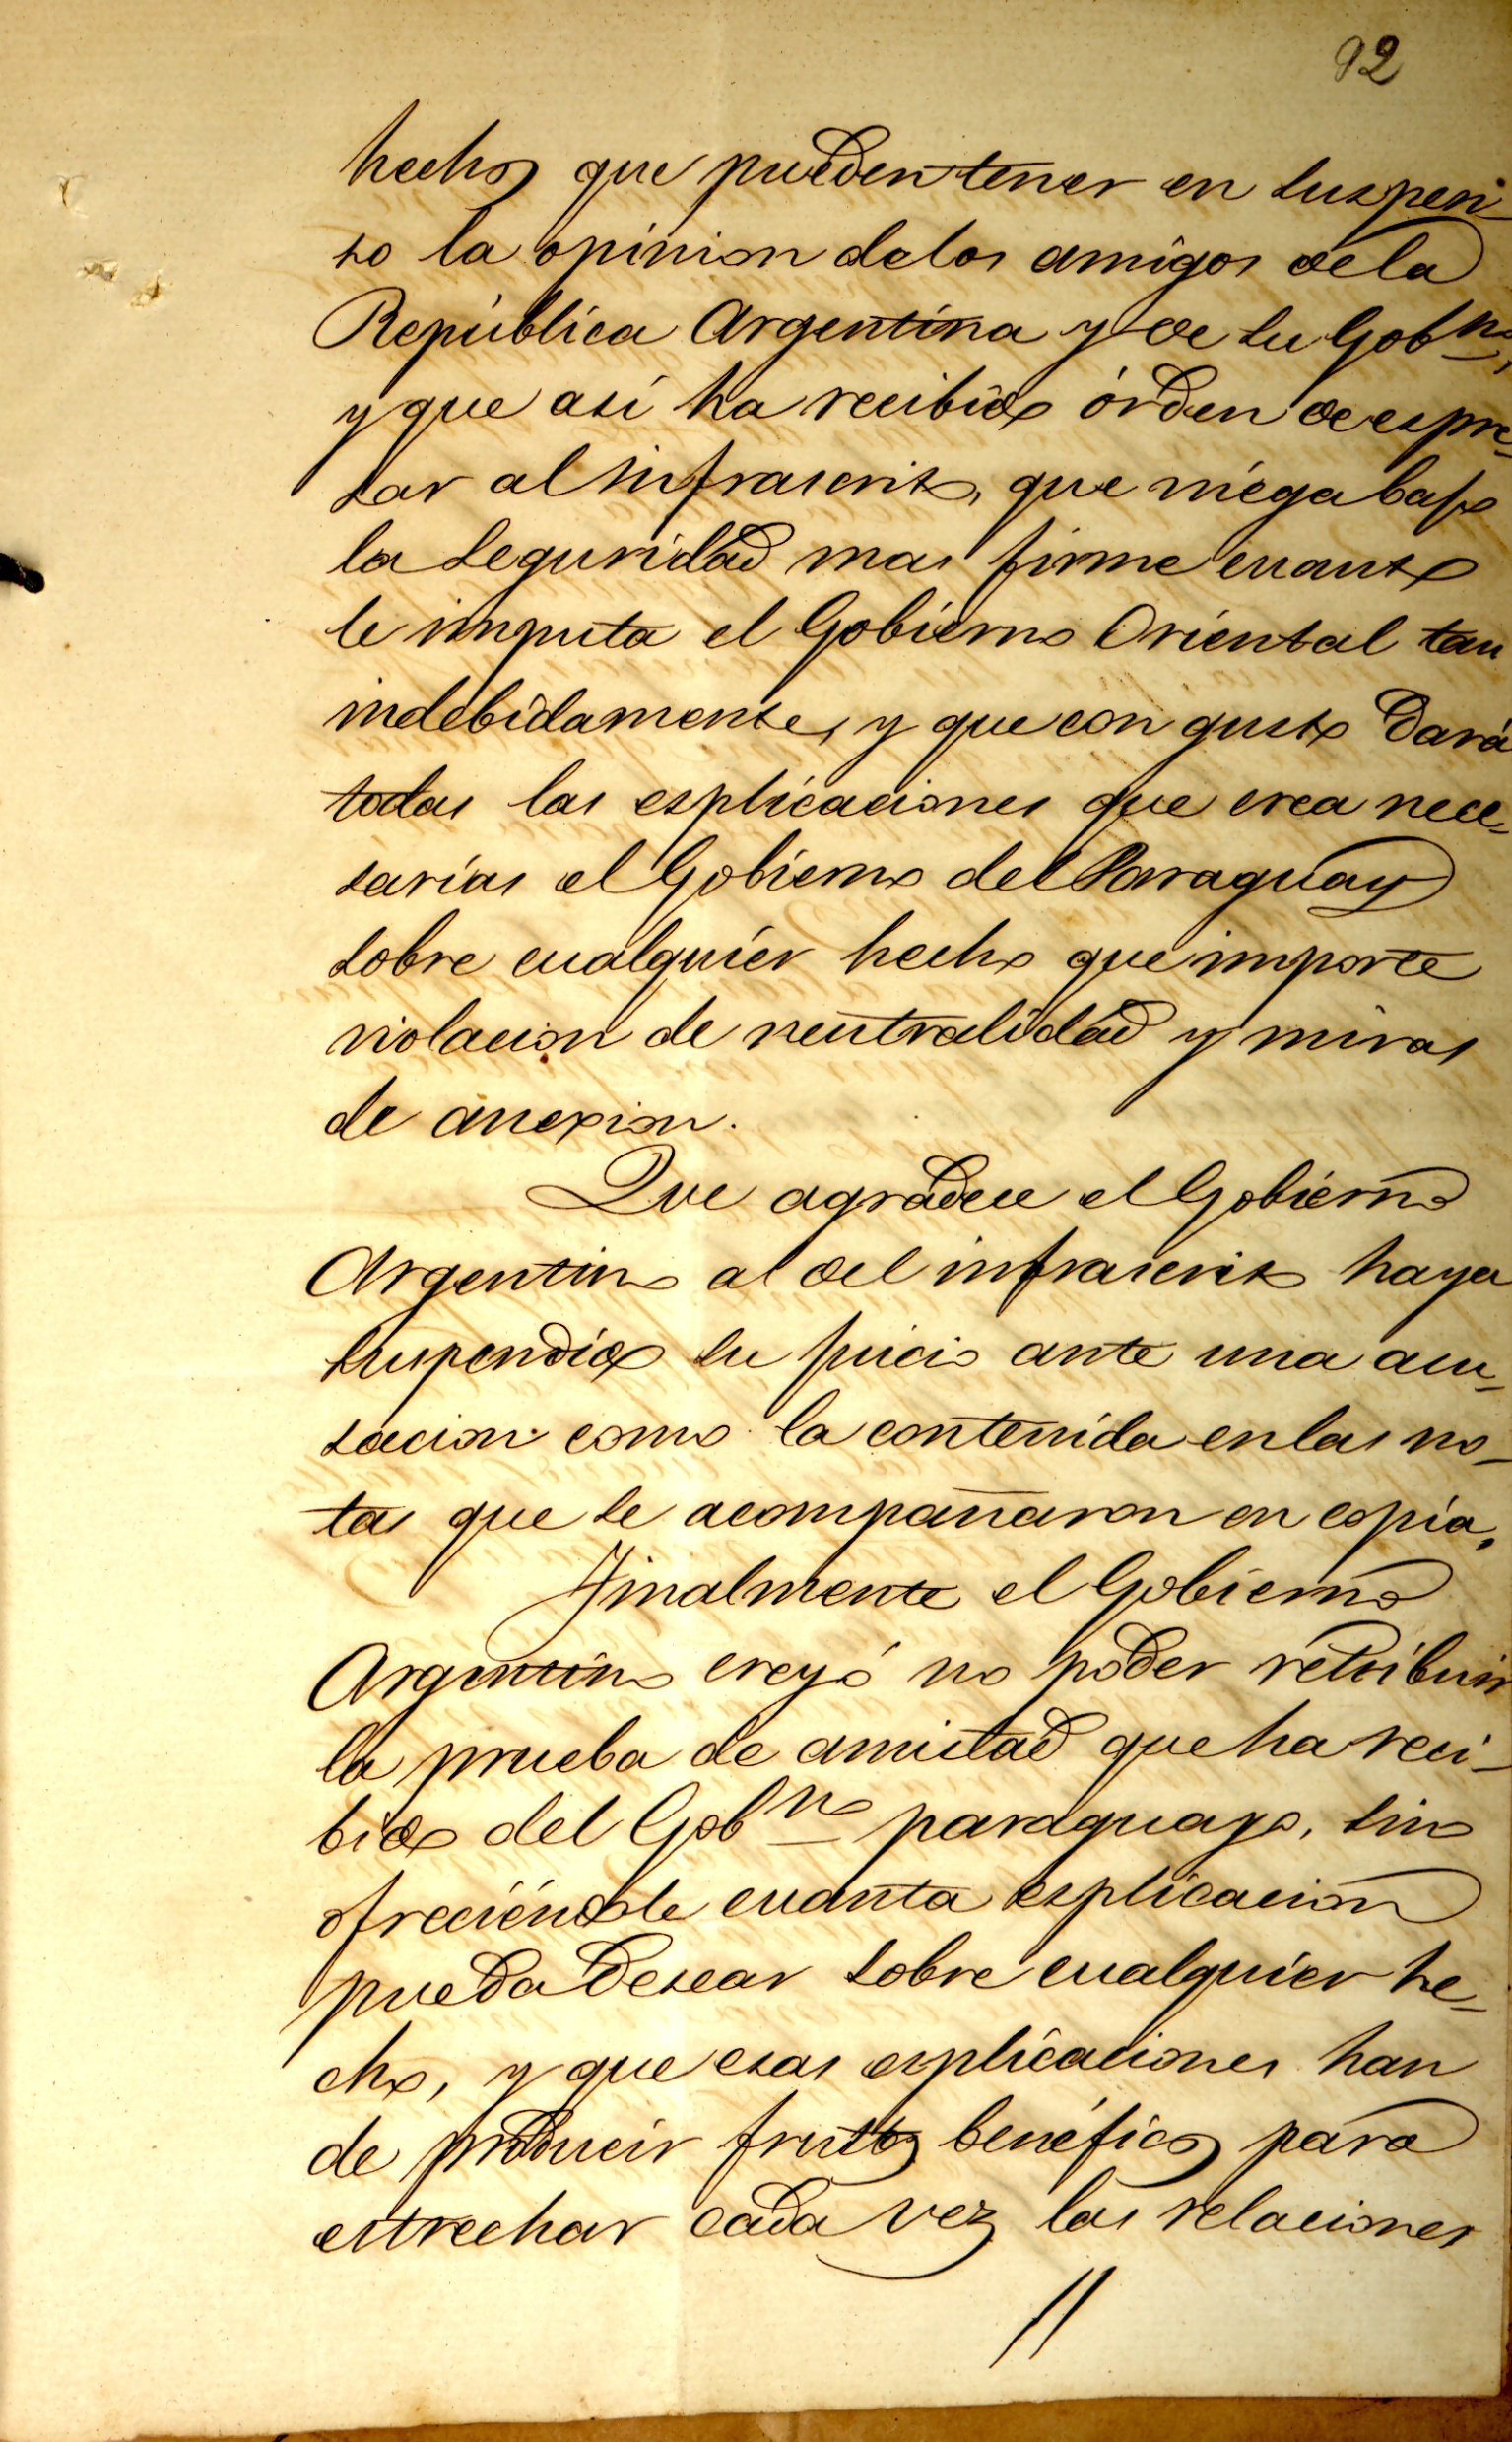 92
hechos que pueden tener en suspen-
so la opinion de los amigos de la
República Argentina y de su Gobno,
y que así ha recibido órden de espre-
sar al infrascrito, que niéga bajo
la seguridad mas firme cuanto
le imputa el Gobierno Oriental tan
indebidamente, y que con gusto dará
todas las esplicaciones que crea nece-
sarias el Gobierno del Paraguay
sobre cualquier hecho que importe
violacion de neutralidad y miras
de anexion.
Que agradece el Gobierno
Argentino al del infrascrito haya
suspendido su juicio ante una acu-
sacion como la contenida en las no-
tas que se acompañaron en copia.
Finalmente el Gobierno
Argentino creyó no poder retribuir
la prueba de amistad que ha reci-
bido del Gobno paraguayo, sino
ofreciéndole cuanta esplicacion
pueda desear sobre cualquier he-
cho, y que esas esplicaciones han
de producir frutos benéficos para
estrechar cada vez las relaciones
//